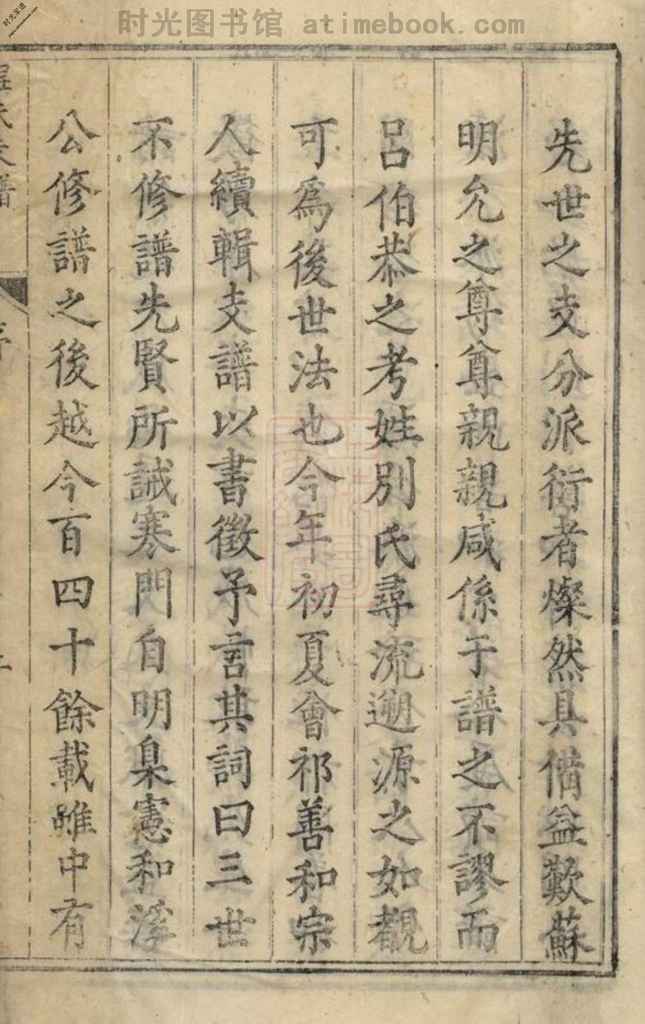 时光图书馆 atimebook.com
先世之支分派衍者燦然具備益歎蘇
明允之尊尊親親咸係于譜之不謬而
呂伯恭之考姓別氏尋流遡源之如觀
可爲後世法也今年初夏會祁善和宗
人續輯支譜以書徵予言其詞曰三世
不修譜先賢所誡寒門自明臬憲和溪
公修譜之後越今百四十餘載雖中有
氏支譜
序